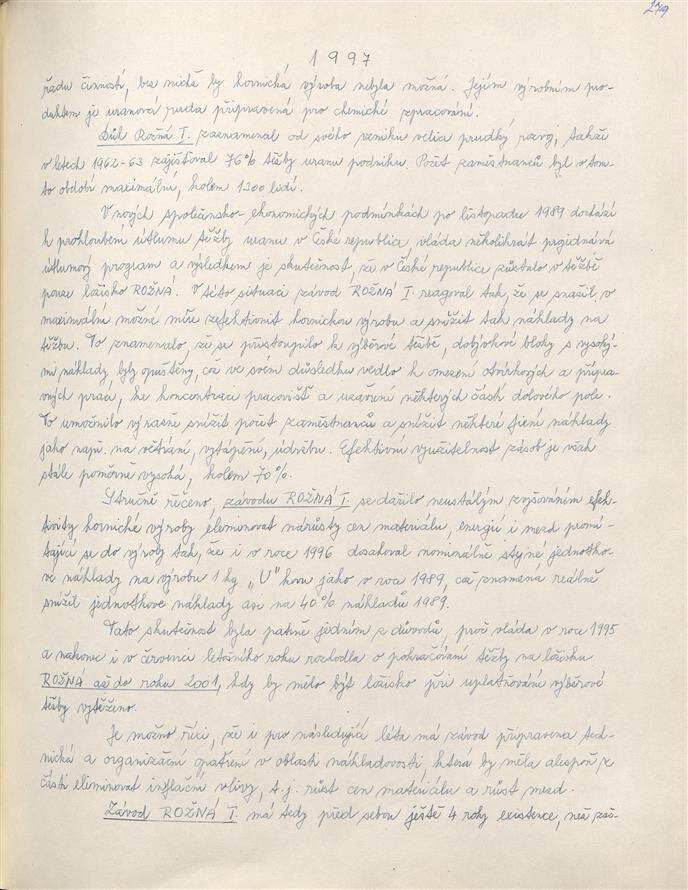 279
1997
řadu činností, bez nichž by hornická výroba nebyla možná. Jejím výrobním pro-
duktem je uranová ruda připravená pro chemické zpracování.
Důl Rožná I. zaznamenal od svého vzniku velice prudký rozvoj, takže
v letech 1962-63 zajišťoval 76% těžby uranu podniku. Počet zaměstnanců byl v tom-
to období maximální, kolem 1300 lidí.
V nových společensko-ekonomických podmínkách po listopadu 1989 dochází
k prohloubení útlumu těžby uranu v České republice, vláda několikrát projednává
útlumový program a výsledkem je skutečnost, že v České republice zůstalo v těžbě
pouze ložisko ROŽNÁ. V této situaci závod ROŽNÁ I. reagoval tak, že se snažil v
maximální možné míře zefektivnit hornickou výrobu a snížit tak náklady na
těžbu. To znamenalo, že se přistoupilo k výběrové těžbě, dobývkové bloky s vysoký-
mi náklady byly opuštěny, což ve svém důsledku vedlo k omezení otvírkových a přípra-
vných prací, ke koncentraci pracovišť a uzavření některých částí dolového pole.
To umožnilo výrazně snížit počet zaměstnanců a snížit některé fixní náklady
jako např. na větrání, vytápění, údržbu. Efektivní využitelnost zásob je však
stále poměrně vysoká, kolem 70%.
Stručně řečeno, závodu ROŽNÁ I. se dařilo neustálým zvyšováním efek-
tivity hornické výroby eleminovat nárůsty cen materiálu, energií i mezd promí-
tající se do výroby tak, že i v roce 1996 dosahoval nominálně stejné jednotko-
vé náklady na výrobu 1 kg „U" kovu jako v roce 1989, což znamená reálně
snížit jednotkové náklady asi na 40% nákladů 1989.
Tato skutečnost byla patrně jedním z důvodů, proč vláda v roce 1995
a nakonec i v červenci letošního roku rozhodla o pokračování těžby na ložisku
ROŽNÁ až do roku 2001, kdy by mělo být ložisko při uplatňování výběrové
těžby vytěženo.
Je možno říci, že i pro následující léta má závod připravena tech-
nická a organizační opatření v oblasti nákladovosti, která by měla alespoň z
části eleminovat inflační vlivy, t.j. růst cen materiálu a růst mezd.
Závod ROŽNÁ I. má tedy před sebou ještě 4 roky existence, než zás-